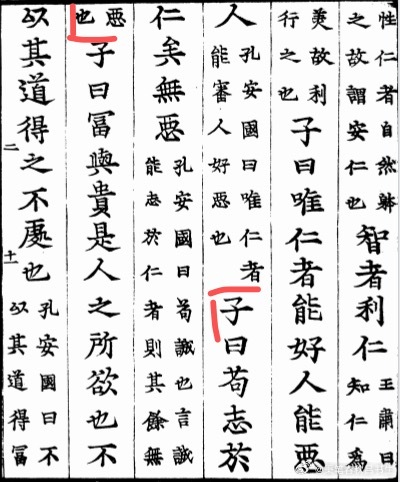 性仁者自然躰之故謂安仁也智者利仁王肅曰知仁為
羙故利行之也子曰唯仁者能好人能惡
人孔安國曰唯仁者能審人好惡也子曰苟志於
仁矣無惡孔安國曰苟誠也言誠能志於仁者則其餘無
惡也子曰冨與貴是人之所欲也不
以其道得之不處也孔安國曰不以其道得冨
二
十一